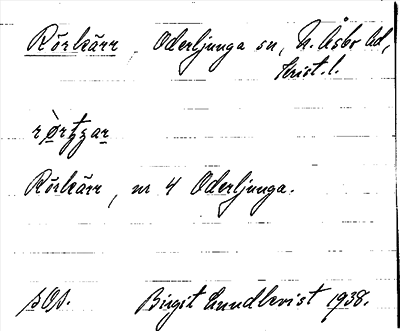 Rörkärr Oderljunga sn, N. Åsbo hd,
Krist. l.
Rörkärr, nr 4 Oderljunga.
Birgit Lundkvist 1938.